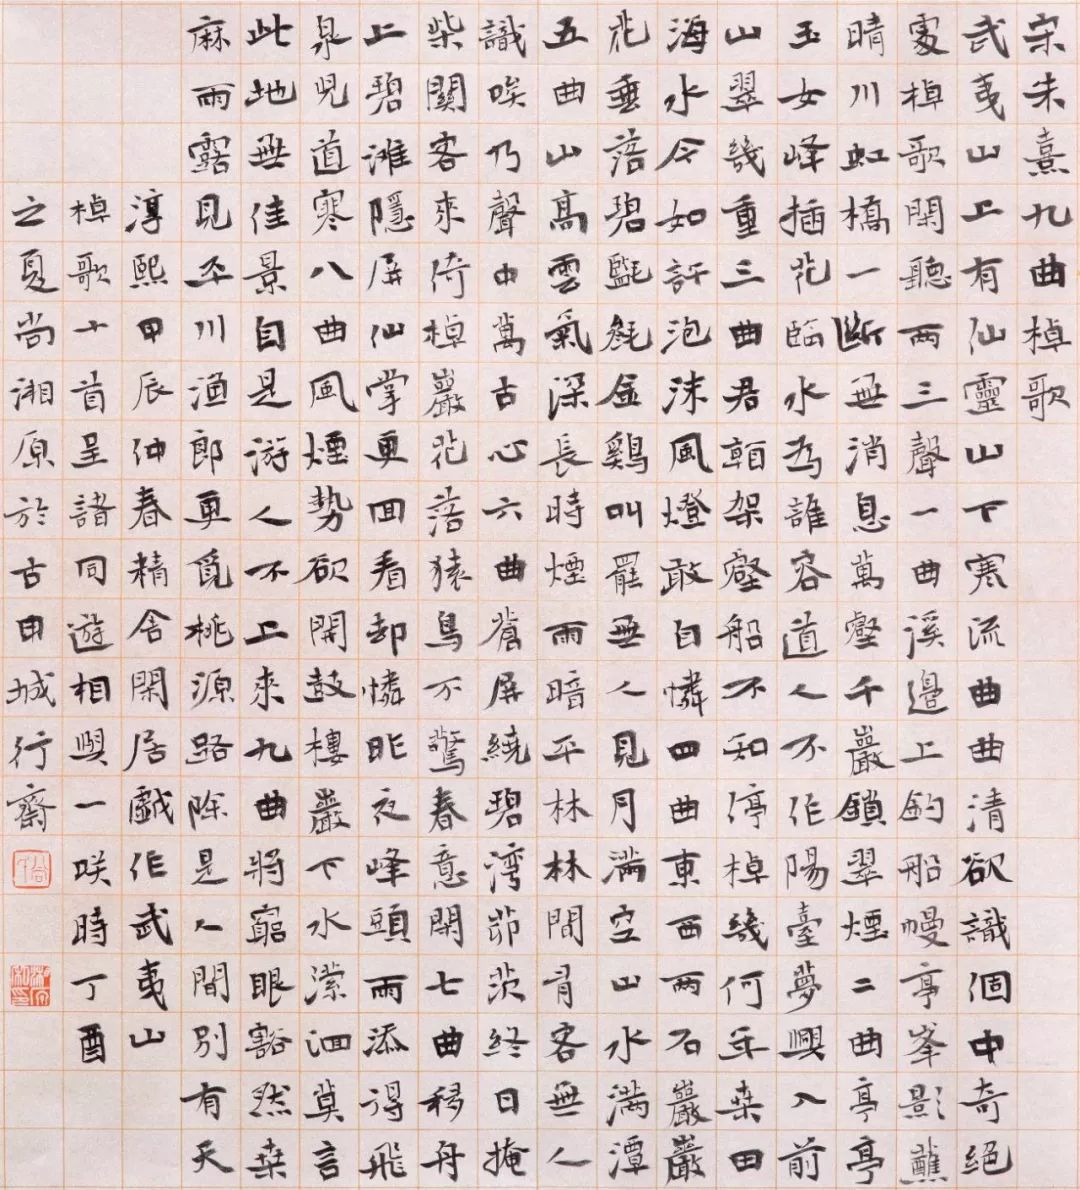 宋朱熹九曲棹歌
武夷山上有仙靈山下寒流曲曲清欲識個中奇絕
處棹歌閑聽兩三聲一曲溪邊上釣船幔亭峯影蘸
晴川虹橋一斷無消息萬壑千巖鎖翠煙二曲亭亭
玉女峰插花臨水為誰容道人不作陽臺夢興入前
山翠幾重三曲君看架壑船不知停棹幾何年桑田
海水今如許泡沫風燈敢自憐四曲東西兩石巖巖
花垂落碧㲯毿金鷄叫罷無人見月滿空山水滿潭
五曲山高雲氣深長時煙雨暗平林林間有客無人
識唉乃聲中萬古心六曲蒼屏繞碧灣茆茨終日掩
柴關客來倚棹巖花落猿鳥不驚春意閑七曲移舟
上碧灘隱屏仙掌更回看却憐昨夜峰頭雨添得飛
泉道寒八曲風煙勢欲開鼓樓巖下水瀠洄莫言
此地無佳景自是游人不上來九曲將窮眼豁然桑
麻雨露見平川漁郎更覓桃源路除是人間別有天
淳熙甲辰仲春精舍閑居戲作武夷山
棹歌十首呈諸同遊相與一咲時丁酉
之夏尚湘原於古申城行齋